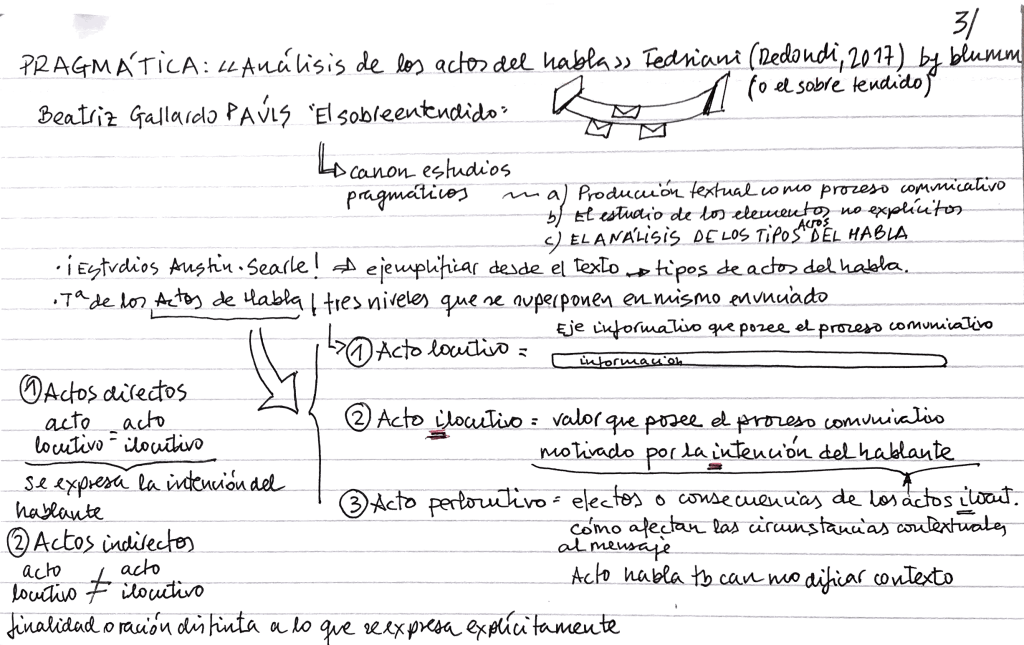 3/
PRAGMÁTICA: «Análisis de los actos del habla» Fedriani (Redondi, 2017) by blumm
(o el sobre tendido)
Beatriz Gallardo PAÚLS "El sobreentendido:
canon estudios
pragmáticos
a) Producción textual como proceso comunicativo
b) El estudio de los elementos no explícitos
c) EL ANÁLISIS DE LOS TIPOS ACTOS DEL HABLA
· ¡Estudios Austin · Searle! ⇒ ejemplificar desde el texto → tipos de actos del habla.
· Tª de los Actos de Habla / tres niveles que se superponen en mismo enunciado
Eje informativo que posee el proceso comunicativo
① Acto locutivo =
información
① Actos directos
acto = acto
locutivo ilocutivo
se expresa la intención del
hablante
② Acto ilocutivo = valor que posee el proceso comunicativo
motivado por la intención del hablante
③ Acto perlocutivo = efectos o consecuencias de los actos ilocut.
cómo afectan las circunstancias contextuales
al mensaje
Acto habla tb can modificar contexto
② Actos indirectos
acto ≠ acto
locutivo ilocutivo
finalidad oración distinta a lo que se expresa explícitamente